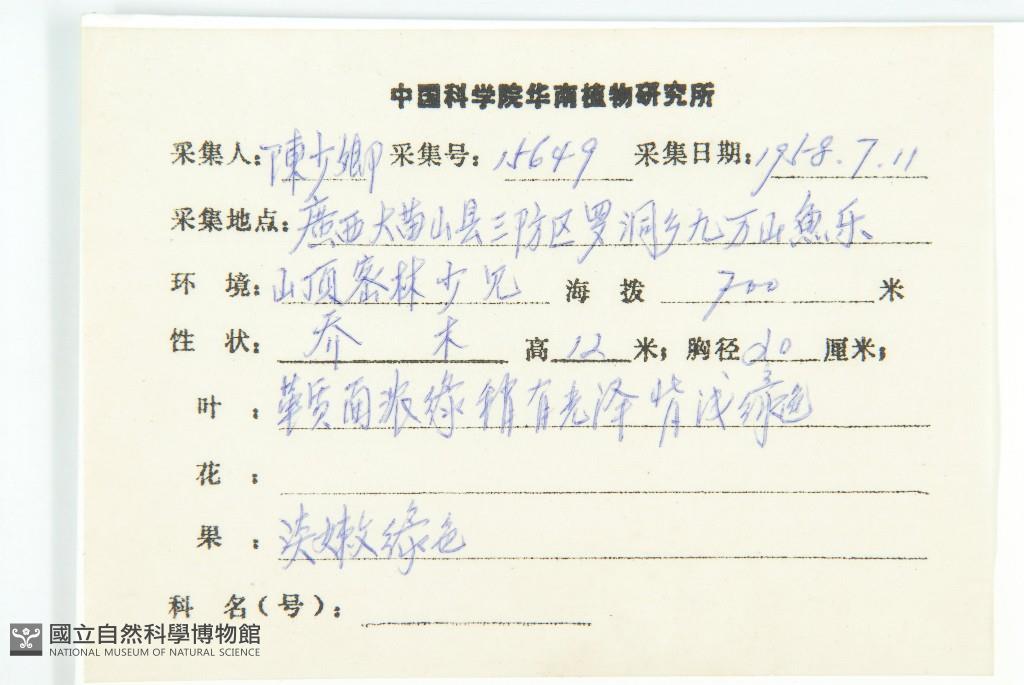 中国科学院华南植物研究所
采集人：陳少卿 采集号：15649 采集日期：1958.7.11
采集地点：廣西大苗山县三防区罗洞乡九万山鱼乐
环 境：山顶密林少见 海 拨 700 米
性 状：乔 木 高 12 米；胸径 20 厘米；
叶 ：革质面浓绿稍有光泽背浅绿色
花 ：
果 ：淡嫩绿色
科 名（号）：
國立自然科學博物館
NATIONAL MUSEUM OF NATURAL SCIENCE